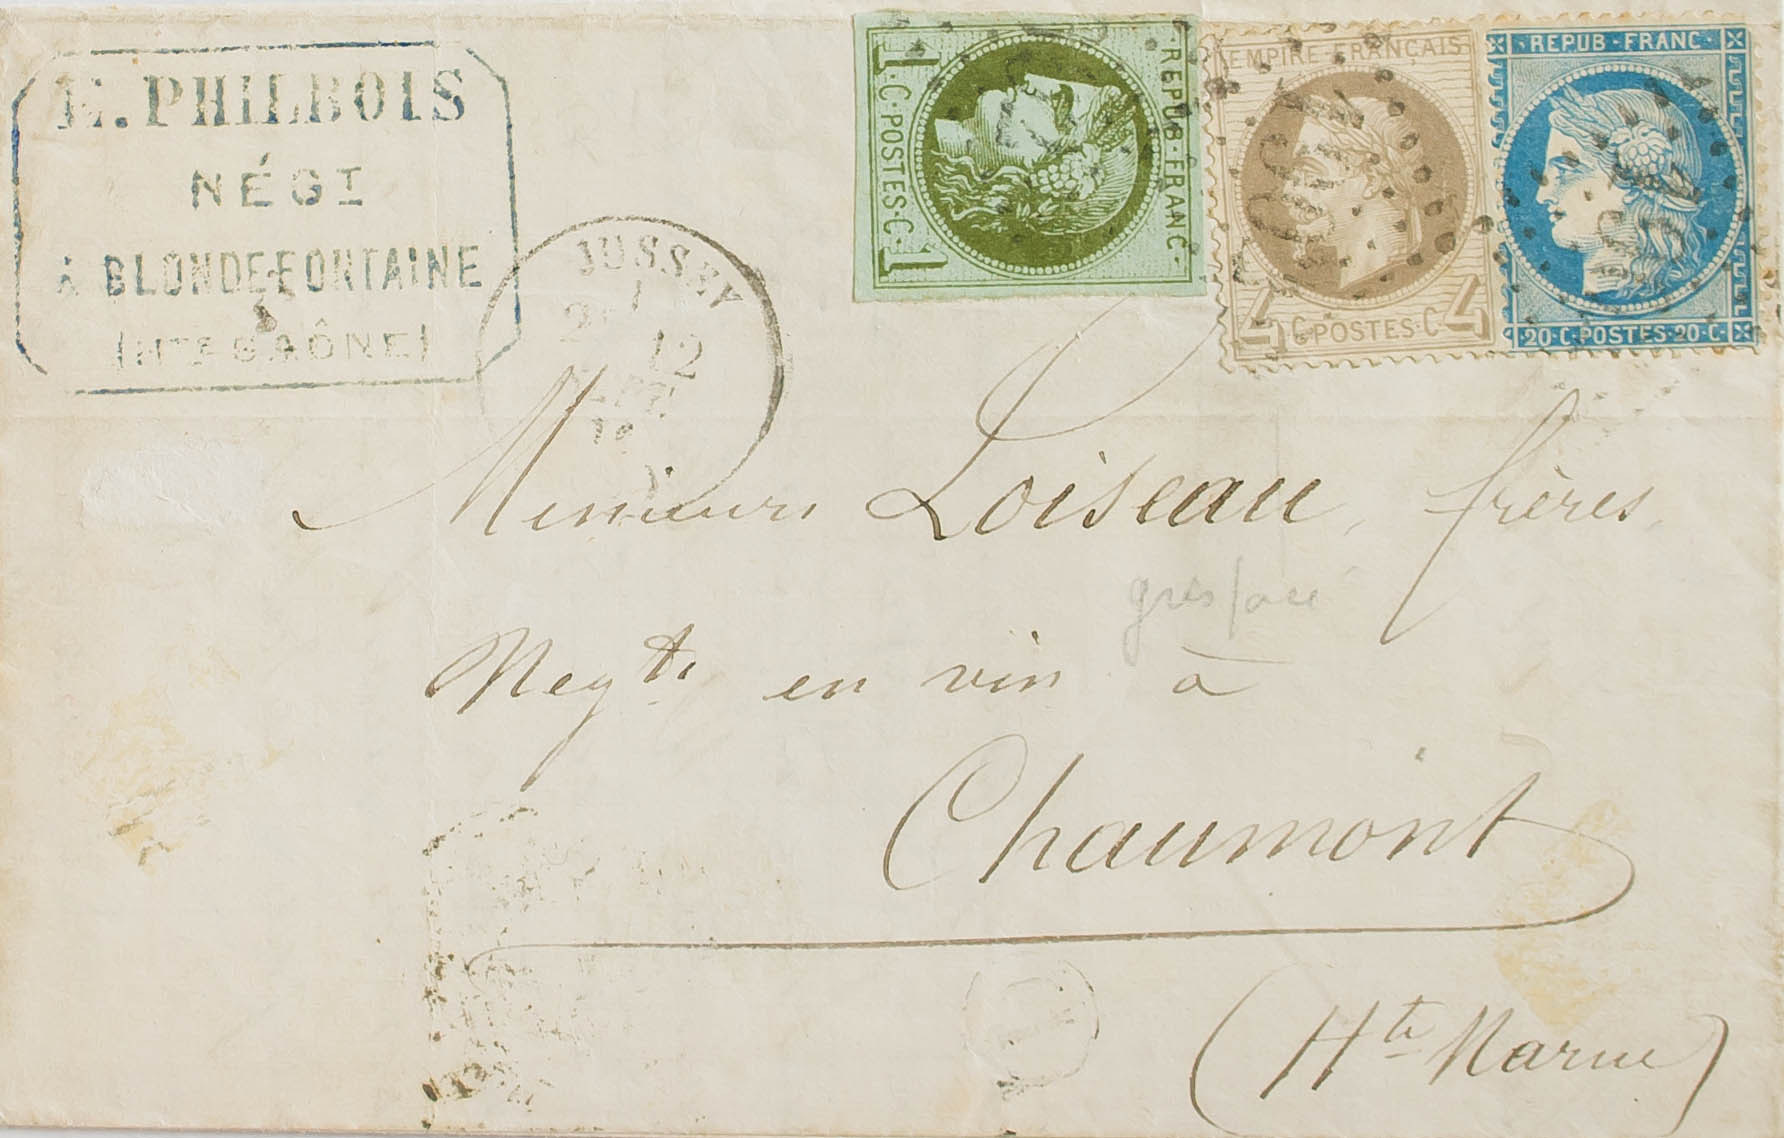 E. PHILBOIS
NÉGT
À BLONDEFONTAINE
(HTE SAÔNE)
JUSSEY
12
1·C·POSTES·C·1
REPUB·FRANC·
EMPIRE·FRANÇAIS
4 C·POSTES·C 4
REPUB·FRANC
20·C·POSTES·20·C·
Messieurs Loiseau, frères,
Negts en vin à
Chaumont
(Hte Marne)